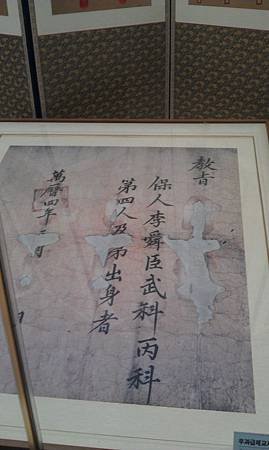 教旨
保人李舜臣武科丙科
第四人及第出身者
萬曆四年三月 日
무과급제교